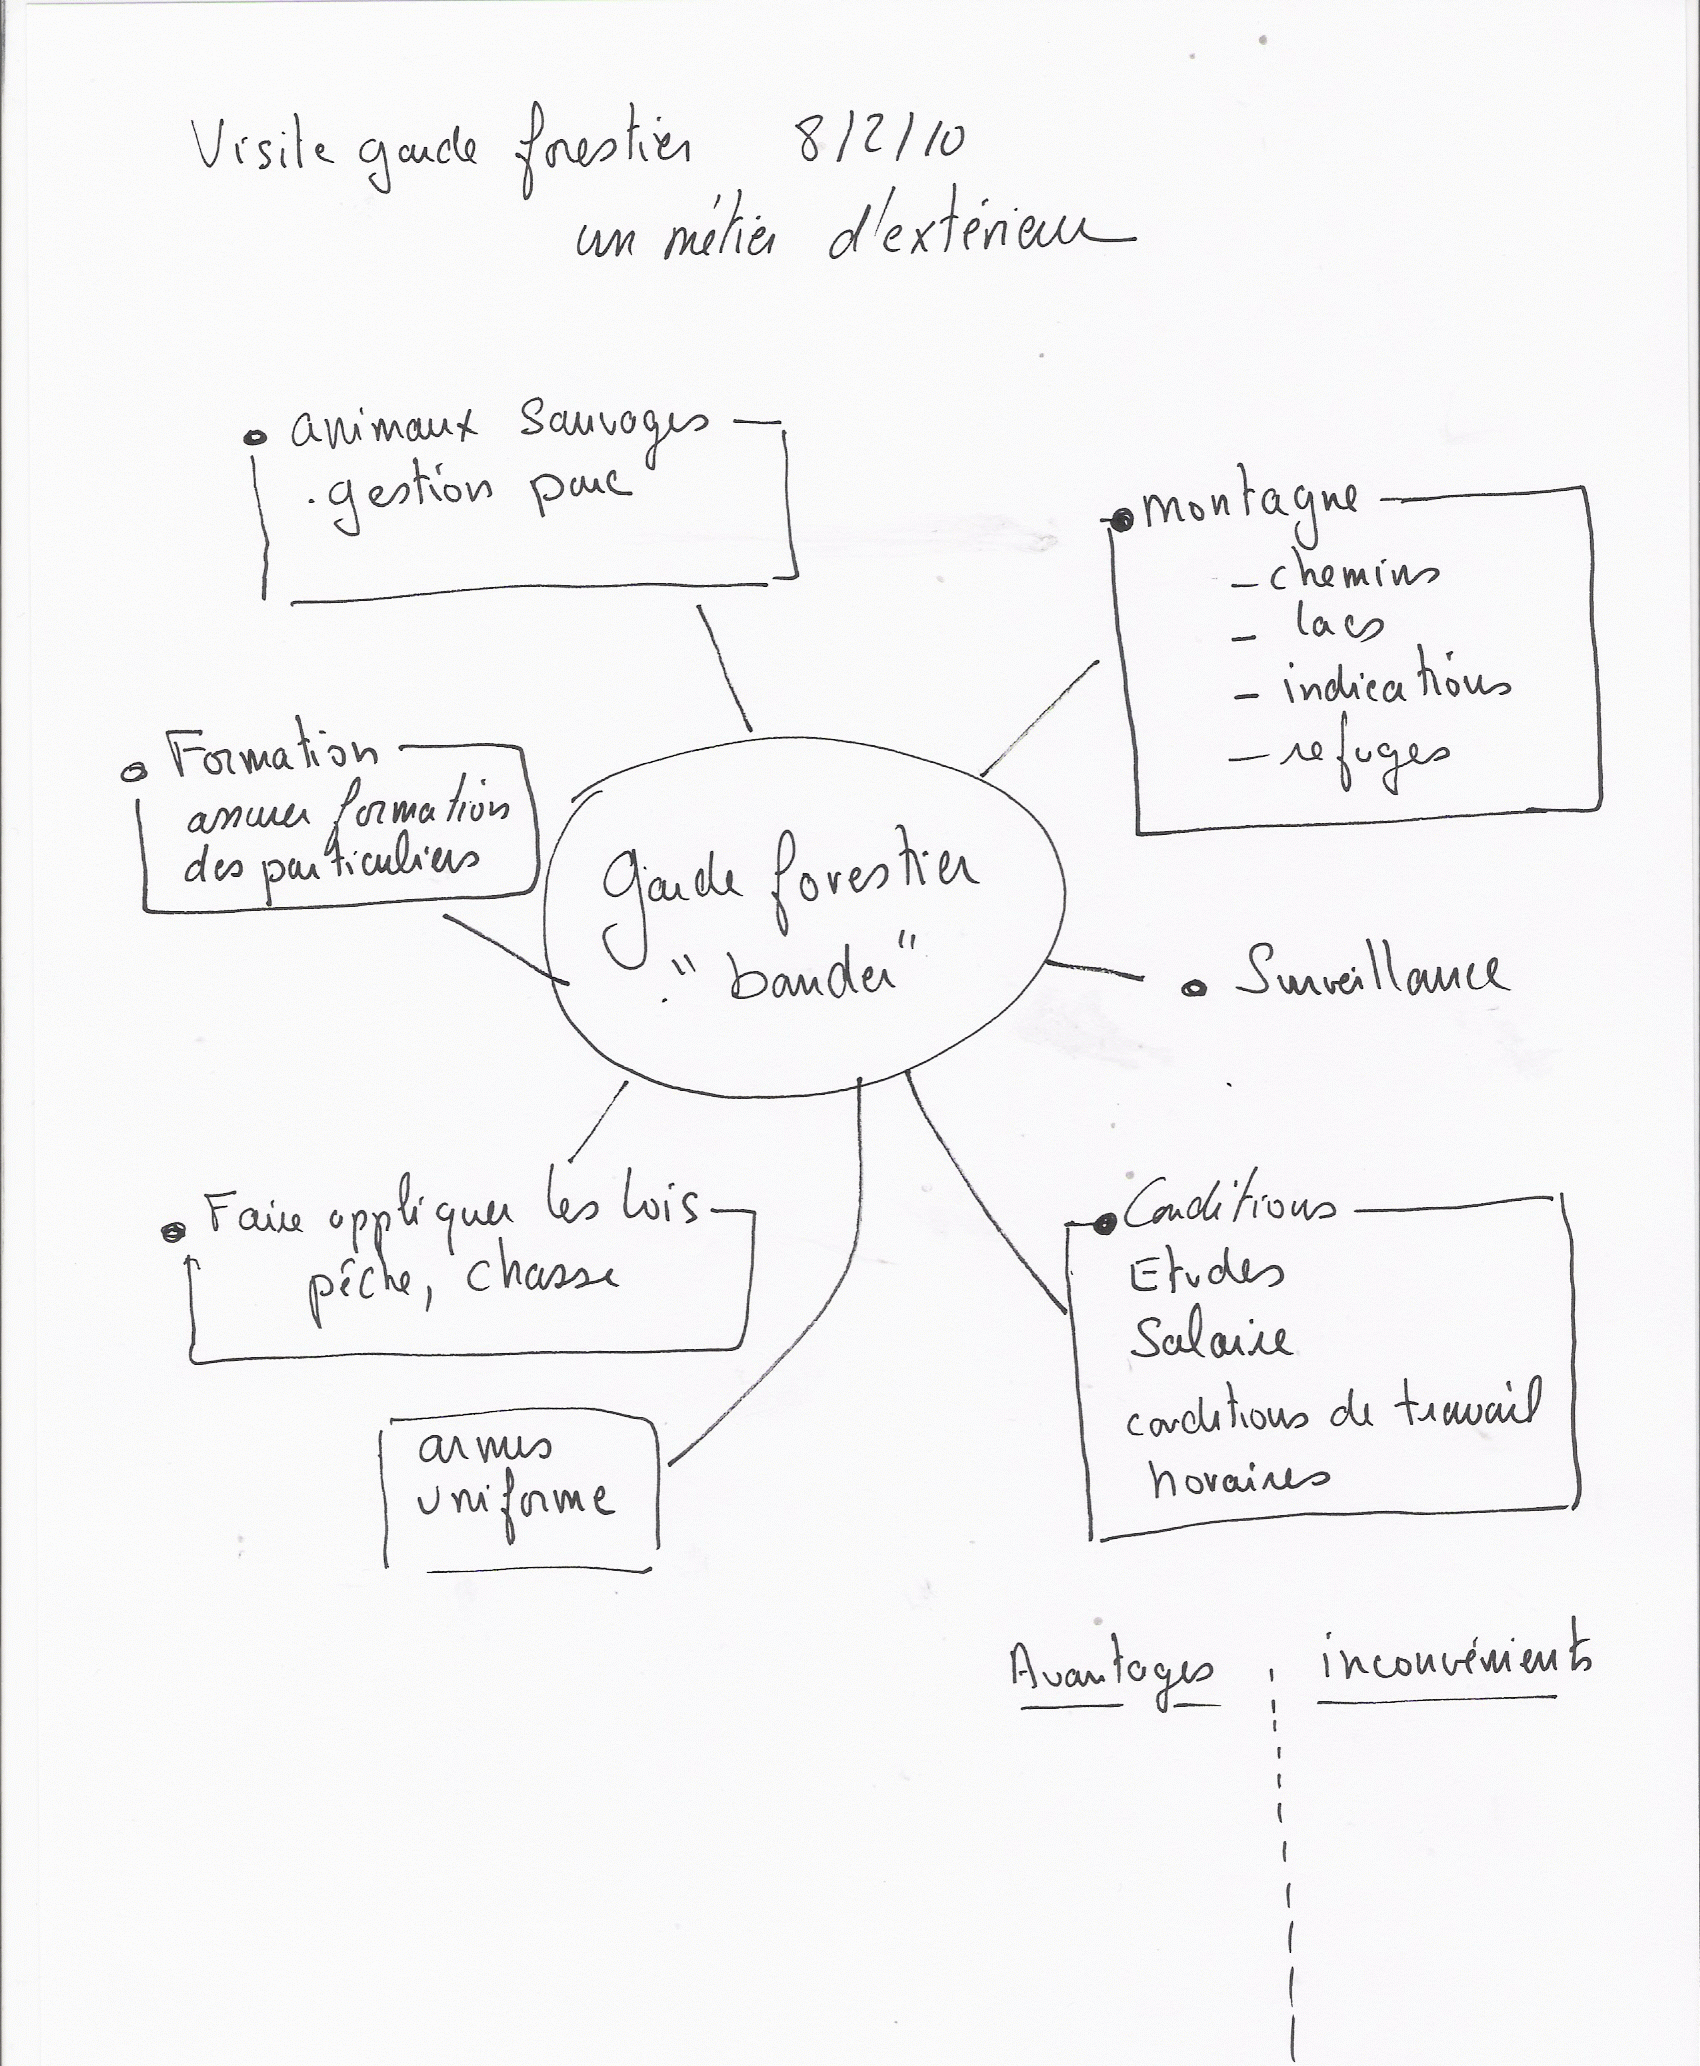 Visite garde forestier 8/2/10
un métier d'extérieur
• animaux sauvages
. gestion parc
• montagne
- chemins
- lacs
- indications
- refuges
• Formation
assurer formation
des particuliers
garde forestier
"bander"
• Surveillance
• Faire appliquer les lois
pêche, chasse
• Conditions
Etudes
Salaire
conditions de travail
horaires
armes
uniforme
Avantages inconvénients